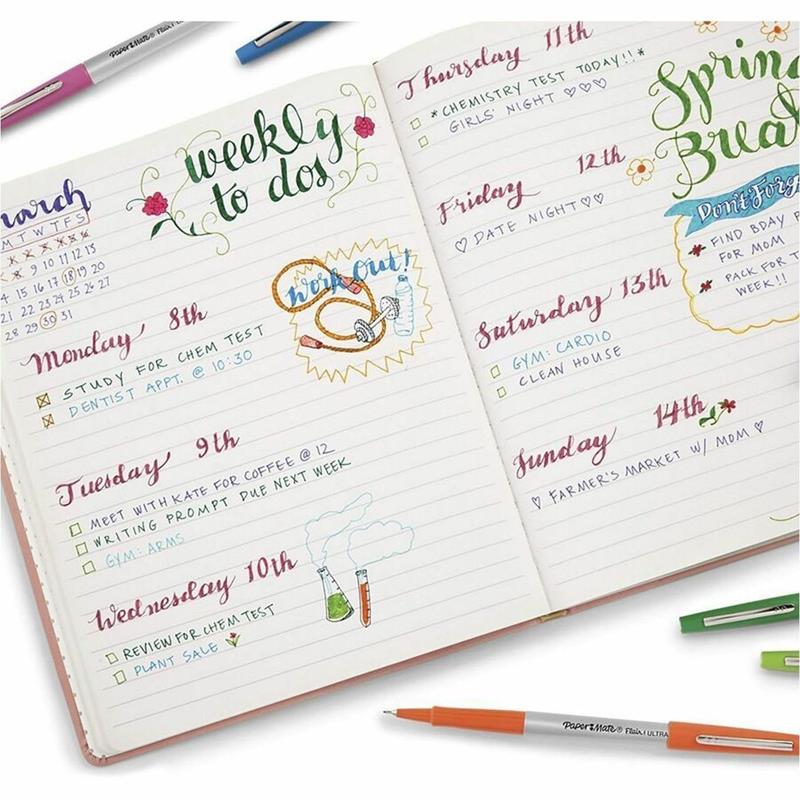 weekly
to dos
March
M T W T F S
9 10 11 12 13
18 19 20
21 22 23 24 25 26 27
28 29 30 31
Work Out!
Monday 8th
STUDY FOR CHEM TEST
DENTIST APPT. @ 10:30
Tuesday 9th
MEET WITH KATE FOR COFFEE @ 12
WRITING PROMPT DUE NEXT WEEK
GYM: ARMS
Wednesday 10th
REVIEW FOR CHEM TEST
PLANT SALE
Thursday 11th
*CHEMISTRY TEST TODAY!!*
GIRLS' NIGHT ♡♡♡
Friday 12th
♡ DATE NIGHT ♡♡
Saturday 13th
GYM: CARDIO
CLEAN HOUSE
Sunday 14th
♡ FARMER'S MARKET W/ MOM ♡
Spring
Break
Don't Forg
FIND BDAY P
FOR MOM
PACK FOR T
WEEK!!
PAPER MATE® Flair
PAPER MATE® Flair! ULTRA